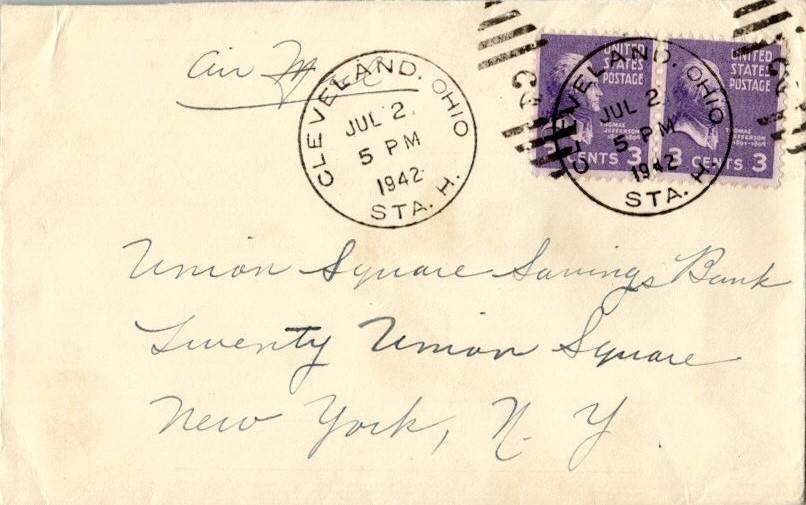 Air
CLEVELAND. OHIO
JUL 2.
5 PM
1942
STA. H.
UNITED
STATES
POSTAGE
THOMAS
JEFFERSON
1801-1809
3 CENTS 3
CLEVELAND. OHIO
JUL 2.
5 PM
1942
STA. H.
UNITED
STATES
POSTAGE
THOMAS
JEFFERSON
1801-1809
3 CENTS 3
Union Square Savings Bank
Twenty Union Square
New York, N. Y